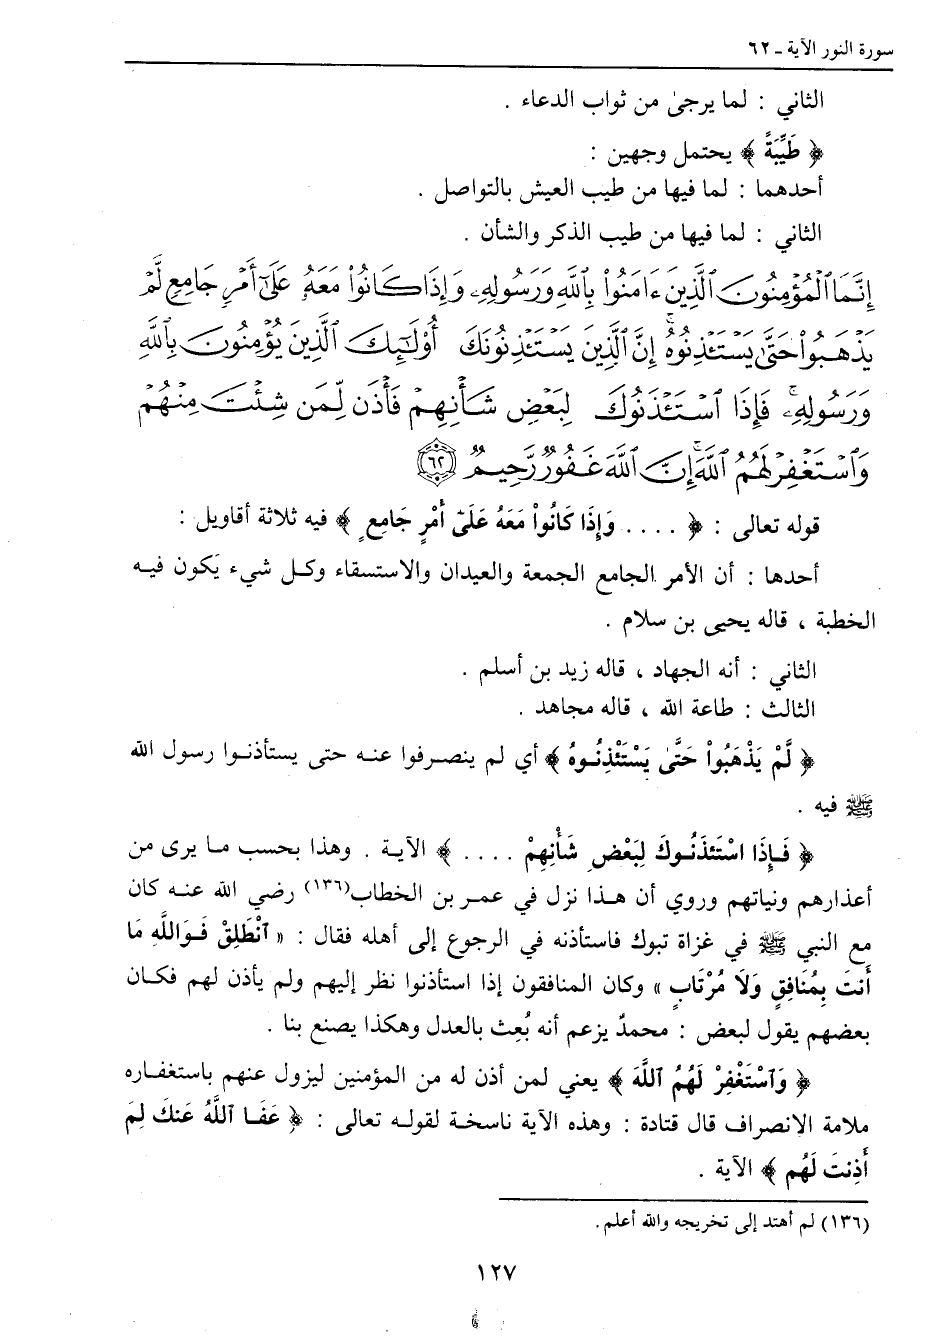 سورة النور الآية ـ ٦٢
الثاني : لما يرجىٰ من ثواب الدعاء .
﴿ طَيِّبَةً ﴾ يحتمل وجهين :
أحدهما : لما فيها من طيب العيش بالتواصل .
الثاني : لما فيها من طيب الذكر والشأن .
إِنَّمَا ٱلْمُؤْمِنُونَ ٱلَّذِينَ ءَامَنُوا۟ بِٱللَّهِ وَرَسُولِهِۦ وَإِذَا كَانُوا۟ مَعَهُۥ عَلَىٰٓ أَمْرٍ جَامِعٍ لَّمْ
يَذْهَبُوا۟ حَتَّىٰ يَسْتَـْٔذِنُوهُ ۚ إِنَّ ٱلَّذِينَ يَسْتَـْٔذِنُونَكَ أُو۟لَـٰٓئِكَ ٱلَّذِينَ يُؤْمِنُونَ بِٱللَّهِ
وَرَسُولِهِۦ ۚ فَإِذَا ٱسْتَـْٔذَنُوكَ لِبَعْضِ شَأْنِهِمْ فَأْذَن لِّمَن شِئْتَ مِنْهُمْ
وَٱسْتَغْفِرْ لَهُمُ ٱللَّهَ ۚ إِنَّ ٱللَّهَ غَفُورٌ رَّحِيمٌ ٦٢
قوله تعالى : ﴿ .... وَإِذَا كَانُواْ مَعَهُ عَلَىٰٓ أَمْرٍ جَامِعٍ ﴾ فيه ثلاثة أقاويل :
أحدها : أن الأمر الجامع الجمعة والعيدان والاستسقاء وكل شيء يَكون فيه
الخطبة ، قاله يحيى بن سلام .
الثاني : أنه الجهاد ، قاله زيد بن أسلم .
الثالث : طاعة الله ، قاله مجاهد .
﴿ لَّمْ يَذْهَبُواْ حَتَّىٰ يَسْتَئْذِنُوهُ ﴾ أي لم ينصرفوا عنه حتى يستأذنوا رسول الله
ﷺ فيه .
﴿ فَإِذَا اسْتَئْذَنُوكَ لِبَعْضِ شَأْنِهِمْ .... ﴾ الآية . وهذا بحسب ما يرى من
أعذارهم ونياتهم وروي أن هذا نزل في عمر بن الخطاب(١٣٦) رضي الله عنه كان
مع النبي ﷺ في غزاة تبوك فاستأذنه في الرجوع إلى أهله فقال : « ٱنْطَلِقْ فَوَاللَّهِ مَا
أَنتَ بِمُنَافِقٍ وَلَا مُرْتَابٍ » وكان المنافقون إذا استأذنوا نظر إليهم ولم يأذن لهم فكان
بعضهم يقول لبعض : محمدٌ يزعم أنه بُعِث بالعدل وهكذا يصنع بنا .
﴿ وَٱسْتَغْفِرْ لَهُمُ ٱللَّهَ ﴾ يعني لمن أذن له من المؤمنين ليزول عنهم باستغفاره
ملامة الانصراف قال قتادة : وهذه الآية ناسخة لقوله تعالى : ﴿ عَفَا ٱللَّهُ عَنكَ لِمَ
أَذِنتَ لَهُم ﴾ الآية .
(١٣٦) لم أهتد إلى تخريجه والله أعلم .
١٢٧